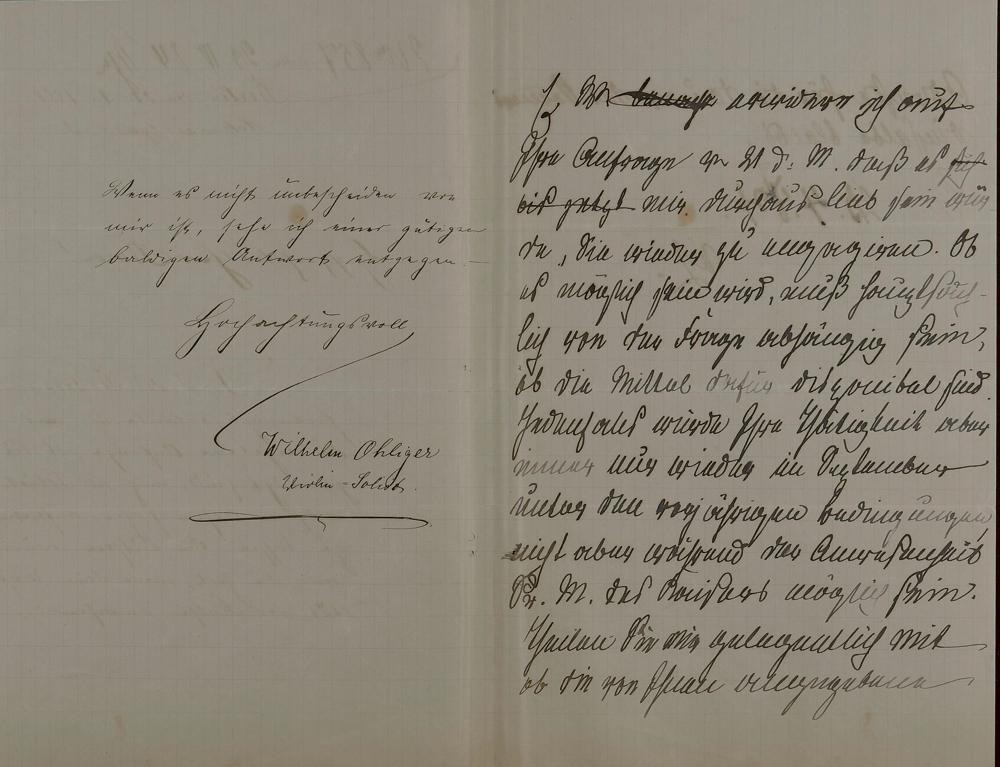 Wenn es nicht unbescheiden von
mir ist, sehe ich einer gütigen
baldigen Antwort entgegen.
Hochachtungsvoll
Wilhelm Ohliger
Violin-Solist.
erwidere ich auf
Ihre Anfrage v 21 d. M. daß es
bis jetzt mir durchaus lieb sein wür-
de, Sie wieder zu engagiren. Ob
es möglich sein wird, muß hauptsäch-
lich von der Frage abhängig sein,
ob die Mittel dafür disponibel sind.
Jedenfals würde Ihre Thätigkeit aber
immer nur wieder im September
unter den vorjährigen Bedingungen,
nicht aber während der Anwesenheit
Sr. M. des Kaisers möglich sein.
Theilen Sie mir gelegentlich mit
ob die von Ihnen angegebene